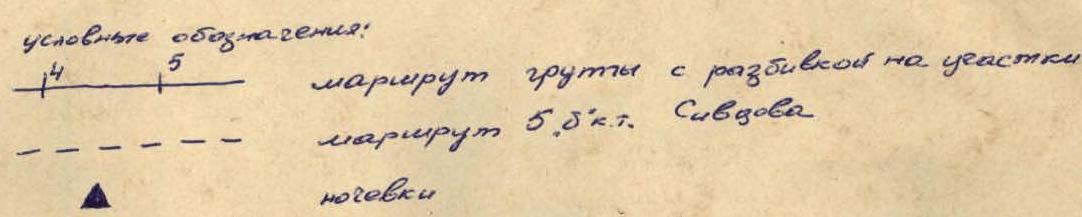 условные обозначения:
4 5 маршрут группы с разбивкой на участки
маршрут 5 „б" к.т. Сивцова
ночевки